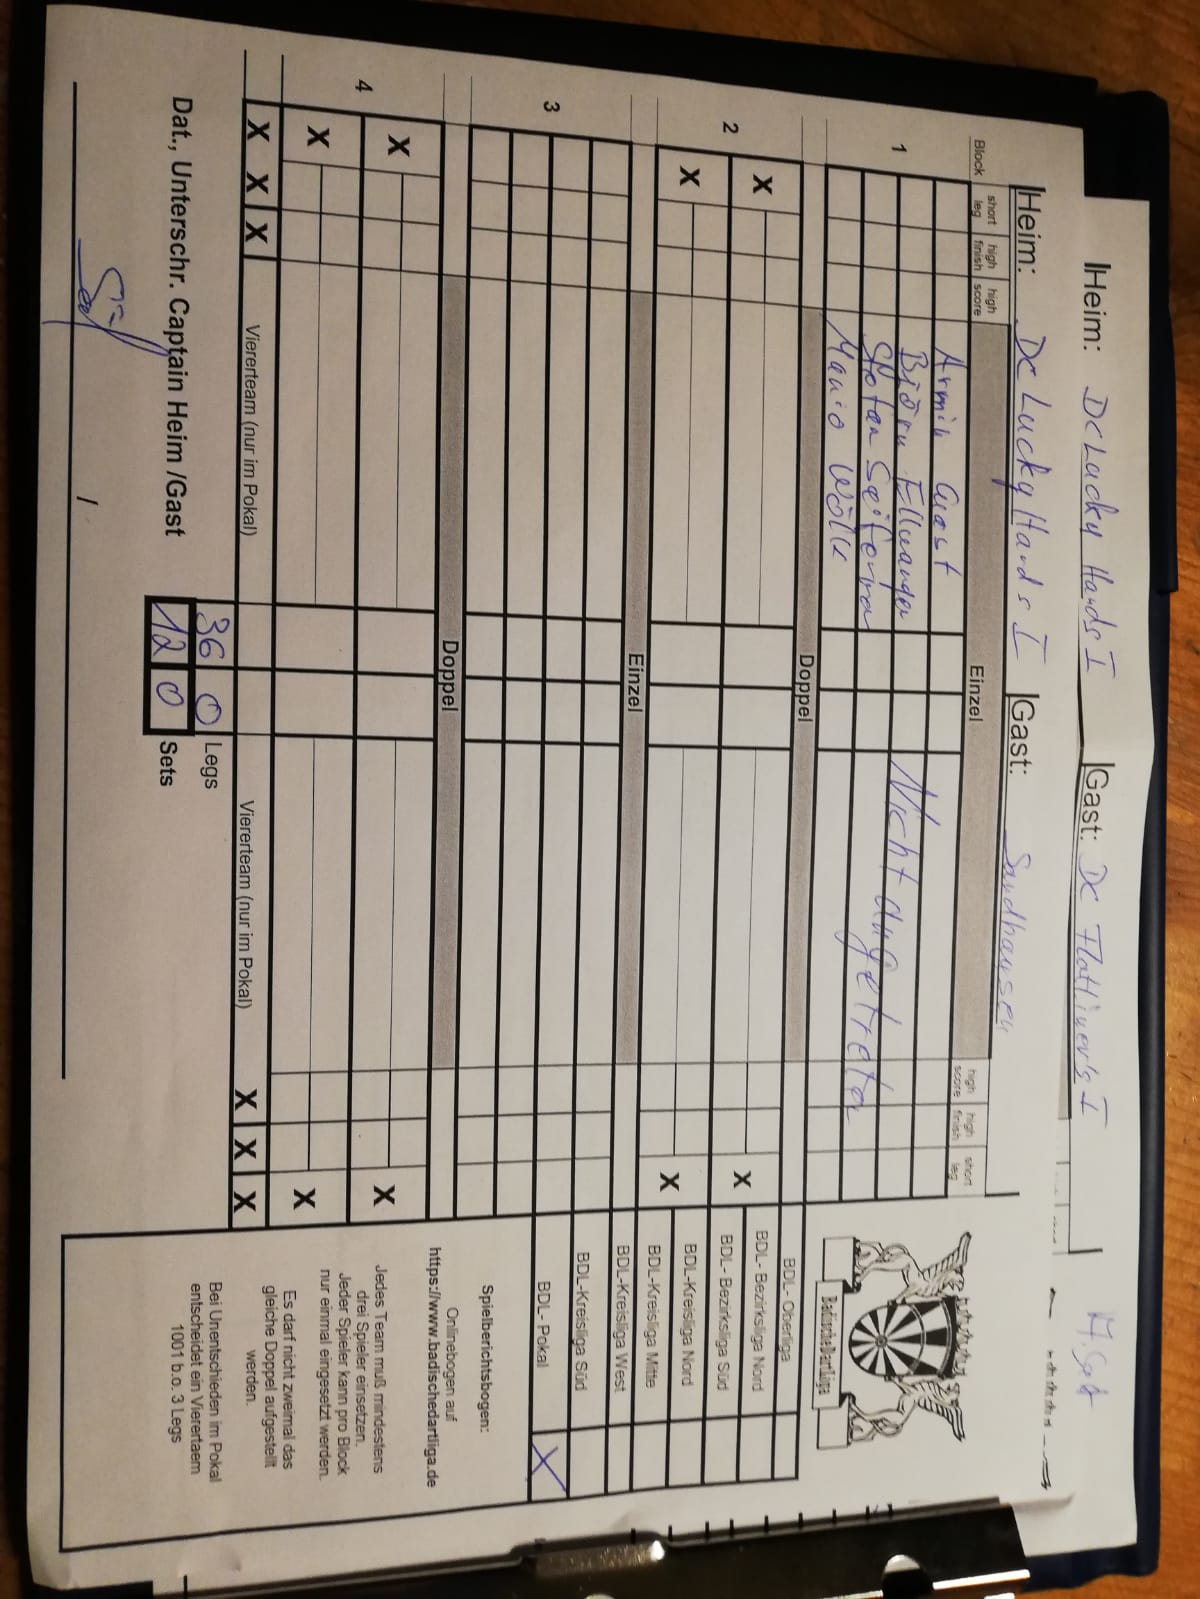 Heim: DC Lucky Hands I Gast: DC Flattliner's I
Heim: DC Lucky Hands I Gast: Sandhausen
Badische Dart Liga
Block short leg high finish high score Einzel high score high finish short leg
1 Armin Gast
Björn Ellwanger
Nicht angetreten
Mario Wölk
Doppel
2 X X
X X
Einzel
3
Doppel
4 X X
X X
X X X Viererteam (nur im Pokal) Viererteam (nur im Pokal) X X X
36 0 Legs
Dat., Unterschr. Captain Heim /Gast 12 0 Sets
/
BDL- Oberliga
BDL- Bezirksliga Nord
BDL- Bezirksliga Süd
BDL-Kreisliga Nord
BDL-Kreisliga Mitte
BDL-Kreisliga West
BDL-Kreisliga Süd
BDL- Pokal X
Spielberichtsbogen:
Onlinebogen auf
https://www.badischedartliga.de
Jedes Team muß mindestens
drei Spieler einsetzen.
Jeder Spieler kann pro Block
nur einmal eingesetzt werden.
Es darf nicht zweimal das
gleiche Doppel aufgestellt
werden.
Bei Unentschieden im Pokal
entscheidet ein Vierertaem
1001 b.o. 3 Legs